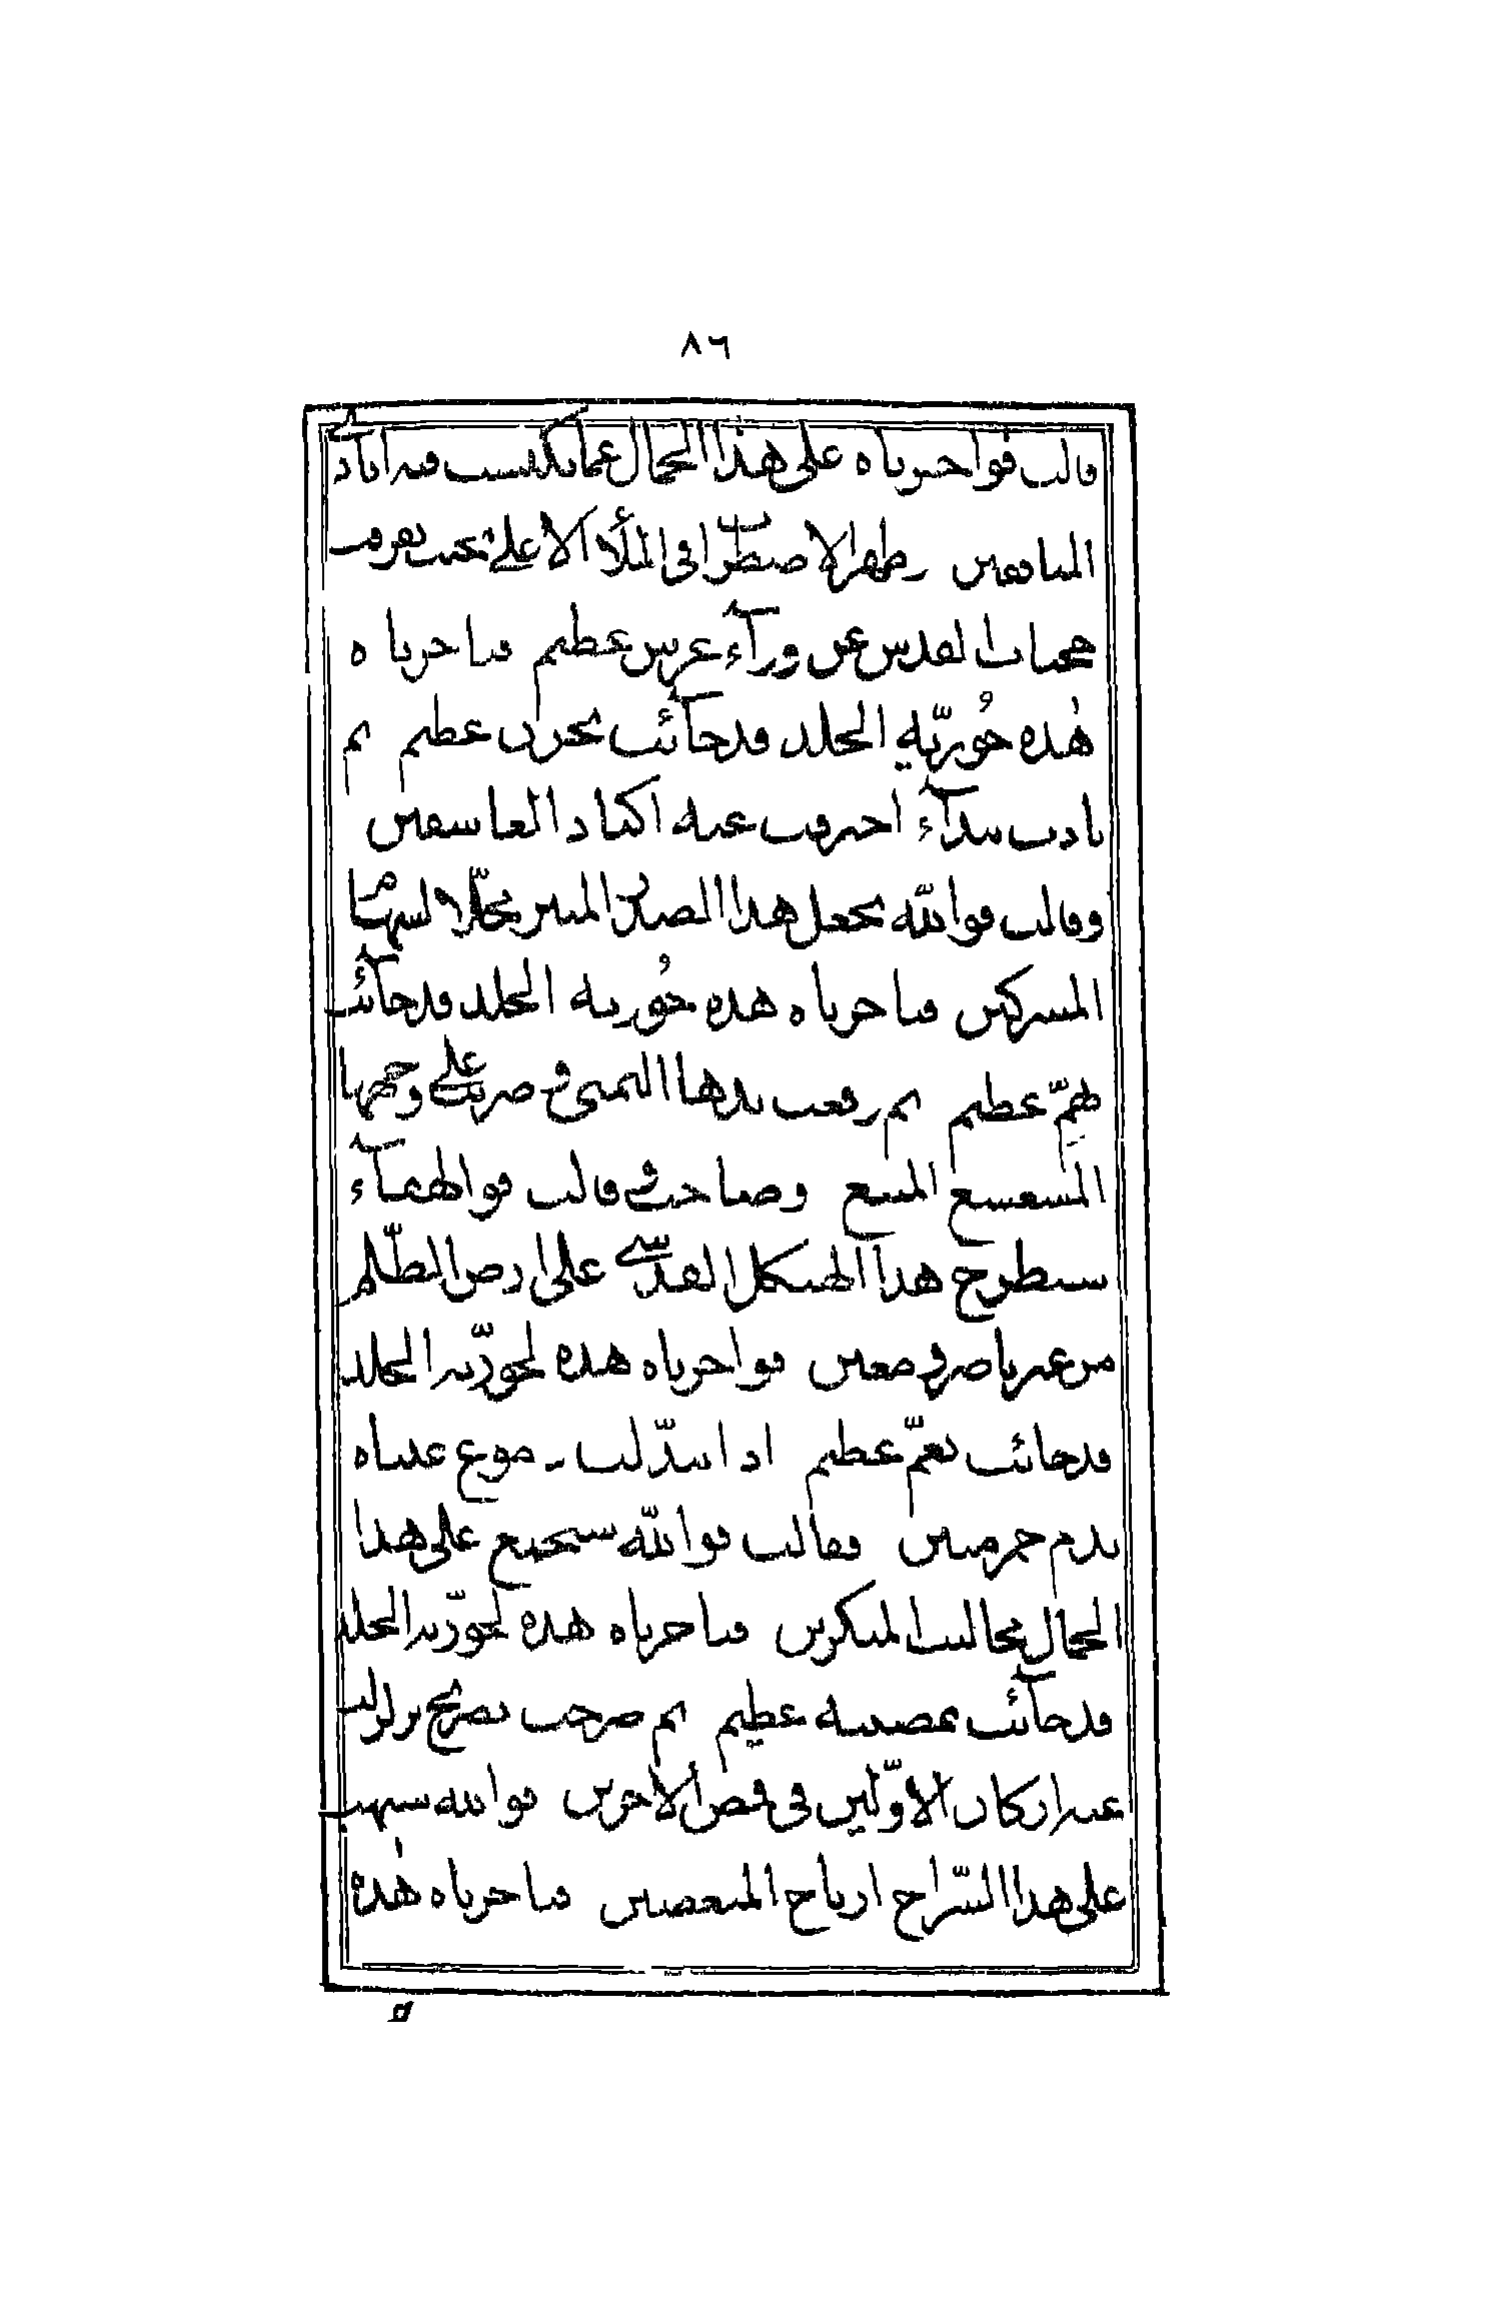 ٨٦
قالت فواحزناه على هذا الجمال عما يكتسب فيه ايادى
المنافقين وظهر الاضطراب فى الملأ الاعلى بحيث تفرقت
حجبات القدس عن ورآء عرش عظيم فياحزناه
هٰذه حُوريّة الخلد قد جائت بحزن عظيم ثم
نادت بندآء احترقت عنه اكباد العاشقين
وقالت فواللّه يجعل هذا الصدر المنير محلّا لسهام
المشركين فياحزناه هذه حُورية الخلد قد جآئت
بهمّ عظيم ثم رفعت يدها اليمنى و ضربت على وجهها
المشعشع المنيع وصاحت و قالت فوالهعمآء
سيطرح هذا الهيكل القدسى على ارض الظّلم
من غير ناصر و معين فواحزناه هذه لحوريّة الخلد
قد جائت بغمّ عظيم اذا تبدّلت دموع عيناه
بدم حمر مبين وقالت فواللّه سيجمع على هذا
الجمال مخاليب المنكرين فياحزناه هذه لحوريّة الخلد
قد جآئت بمصيبة عظيم ثم صرخت بصريخ تزلزلت
عنه اركان الاوّلين فى قمص الاخرين فوالله سيهب
على هذا السّراج ارياح المبغضين فياحزناه هٰذه